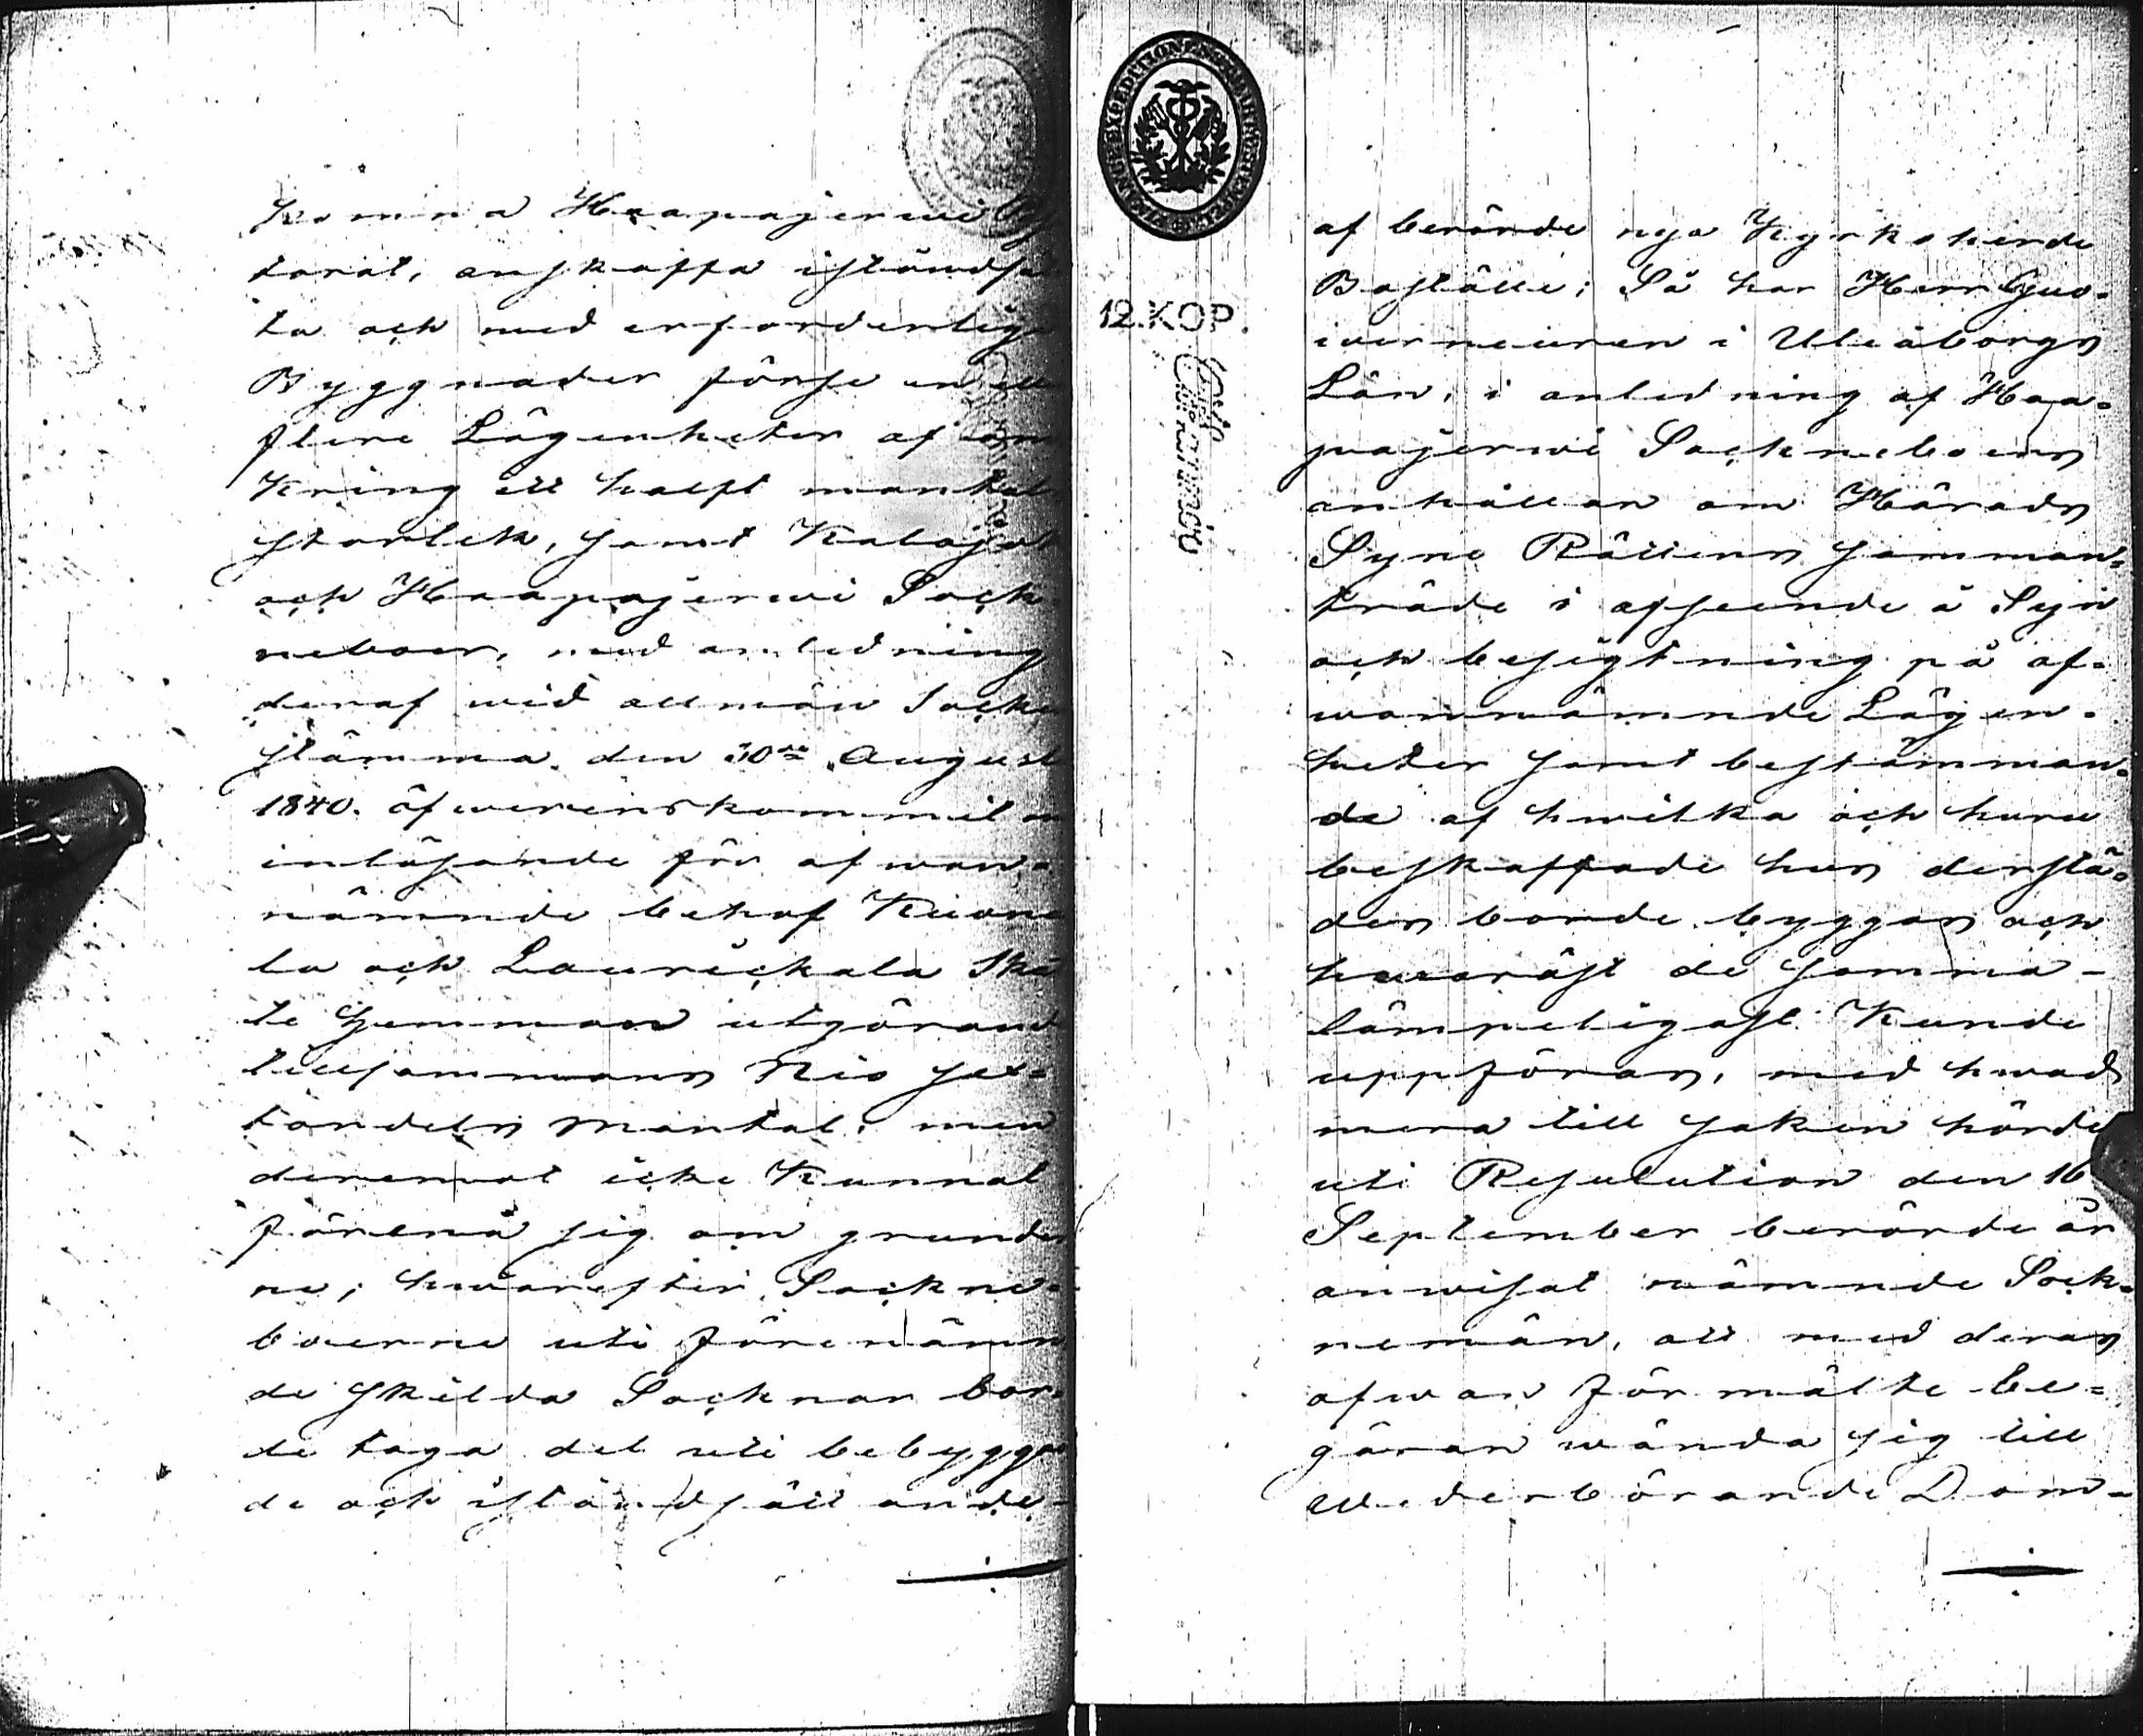 komna Haapajerwi
torat, anskaffa iståndsa
ta och med erforderlige
Byggnader förse en ell
flere Lägenheter af om
kring ett halft mantals
storlek, samt Kalajok
och Haapajerwi Sock
neboer, med anledning
deraf wid allmän Socke
stämma den 30de August
1840. öfwerenskommit
inlösande för ofwan
nämnde behof Kuone
la och Laurickala Ska
te Hemman utgörand
tillsammans Nio sex=
tondels Mantal, men
deremot icke Kunnat
förena sig om grunder
ne; hwarefter Sockne=
boerne uti förenämn
de skilda Socknar bor=
de taga del uti bebyggan
de och iståndsättande
12. KOP.
af berörde nya Kyrkoherde
Boställe; Så har Herr Guv=
verneuren i Uleåborgs
Län, i anledning af Haa=
pajerwi Sockneboers
anhållan om Härads
Syne Rättens samman=
träde i afseende å Syn
och besigtning på of=
wannämnde Lägen=
heter samt bestämman=
de af hwilka och huru
beskaffade hus derstä=
des borde byggas och
hwaräst de samma
lämpeligast Kunde
uppföras, med hwad
mera till saken hörde
uti Resolution den 16
September berörde år
anwisat nämnde Sock=
nemän, att med deras
ofwan förmälte be=
gäran wända sig till
Wederbörande Dom=